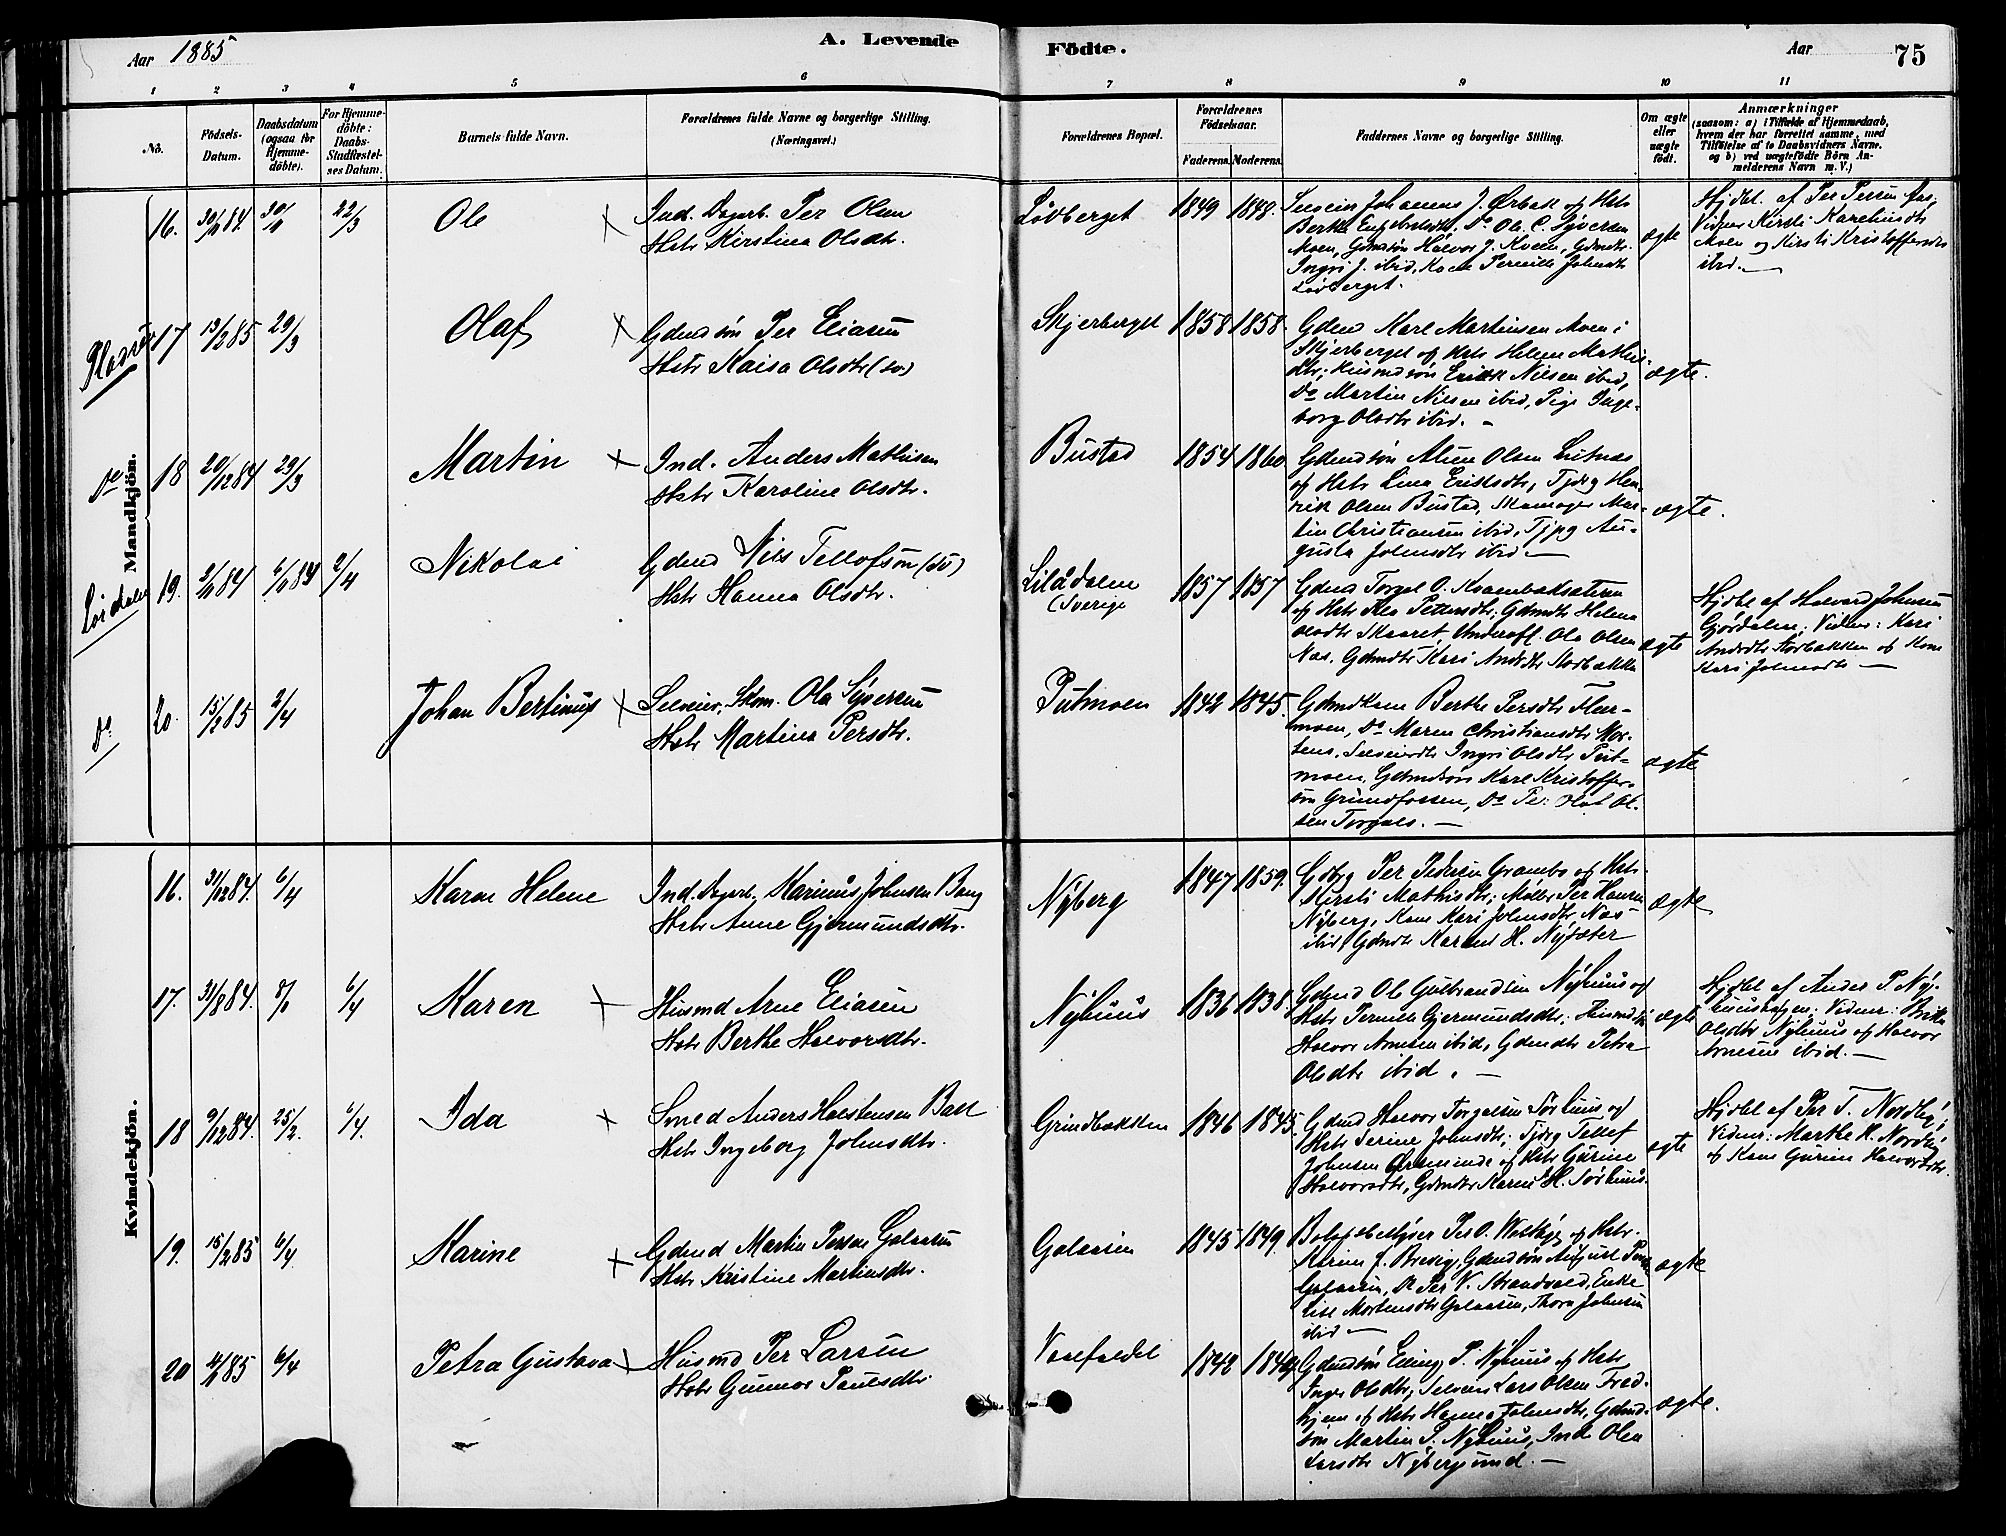 Aar 1885
A. Levende
Födte.
Aar
75
1 2 3 4 5 6 7 8 9 10 11
No.
Födsels-
Datum.
Daabsdatum
(ogsaa for
Hjemme-
döbte).
For Hjemme-
döbte:
Daabs-
Stadfæstel-
ses Datum.
Barnets fulde Navn.
Forældrenes fulde Navne og borgerlige Stilling.
(Næringsvei.)
Forældrenes Bopæl.
Forældrenes
Födselsaar.
Faderens.
Moderens.
Faddernes Navne og borgerlige Stilling.
Om ægte
eller
uægte
födt.
Anmærkninger
(saasom: a) i Tilfælde af Hjemmedaab,
hvem der har forrettet samme, med
Tilföielse af to Daabsvidners Navne.
og b) ved uægtefödte Börn An-
melderens Navn m. V.)
Mandkjön.
16.
22/3
Ole
Ind. Dagarb. Per Olsen
Hstr Kirstina Olsdtr.
Lövberget
1849 1848.
Selveier Johannes J. Ørbæk og Hstr
Moen, Gdmdsön Halvor J. Kveen, Gdmdtr.
Ingri J. ibid, Kone Pernille Johnsdtr
Lövberget.
ægte
Hjdbt. af Per Persen
Moen og Kirsti Kristoffersdtr
ibid.
17 13/2 85 29/3
Olaf
Gdmdsön Per Eliasen
Hstr Kaisa Olsdtr (sv)
Skjerberget
1858 1858.
Gdmd Karl Martinsen Moen i
Skjerberget og Hstr Helene Mathis-
dtr; Husmdsön Erik Nilsen ibid,
Do Martin Nilsen ibid, Pige Inge-
borg Olsdtr ibid.
ægte.
Do
18 20/12 84 29/3
Martin
Ind. Anders Mathisen
Hstr Karoline Olsdtr.
Bustad
1854 1860
og Hstr Lina Eriksdtr, Tjdrg Hen-
rik Olsen Bustad, Skomager Mar-
tin Christiansen ibid, Tjpg Au-
gusta Johnsdtr ibid.
ægte.
19. 2/4
Nikolai
Gdmd Nils Tellofsön (sv)
Hstr Hanna Olsdtr.
Lilådalen
(Sverige
1857 1857
Gdmd Torgal O. Kvambæksæteren
og Hstr Kea Pettersdtr; Gdmdtr Helena
Olsdtr Skaaret, Underoff. Ole Olsen
Næs. Gdmdtr Kari Andrdtr Storbækken
ægte
Hjdbt af Halvard Johnsen
Gjördalen; Vidner: Kari
Andrdtr Storbækken og Kone
Kari Johnsdtr
Do
20. 15/2 85 2/4
Johan Bertinius
Selveier, Skom. Ola Syversen
Hstr Martina Persdtr.
Putmoen
1842 1845.
Gdmdkone Berthe Persdtr Flær-
moen, Do Maren Christiansdtr Mor-
tens, Selveierdtr Ingri Olsdtr Put-
moen, Gdmdsön Karl Kristoffer-
sen Grundfossen, Do Per Olaf Ol-
sen Torgals.
ægte
Kvindekjön.
16. 31/12 84. 6/4
Karen Helene
Ind. Dagarb. Marinus Johnsen Bang
Hstr Anne Gjermundsdtr.
Nyberg
1847 1859.
Gdbrg Per Pedersen Grambo og Hstr
Kirsti Mathisdtr; Möller Per Hansen
Nyberg, Kone Kari Johnsdtr Næs
ibid, Gdmdtr Karen H. Nysæter
ægte
17. 31/8 84. 6/4
Karen
Husmd Arne Eliasen
Hstr Berthe Halvorsdtr.
Nyhuus
1836 1838.
Gdmd Ole Gulbrandsen Nyhuus og
Hstr Pernille Gjermundsdtr; Husmdsön
Halvor Arnesen ibid, Gdmdtr Petra
Olsdtr ibid.
ægte
Hjdbt af Anders P. Ny-
huushögen; Vidner: Brita
Olsdtr Nyhuus og Halvor
Arnesen ibid.
18 9/12 84. 25/2. 6/4.
Ida
Smed Anders Halstensen Bakk
Hstr Ingeborg Johnsdtr.
Grindbækken
1846 1845.
Gdmd Halvor Torgalsen Sörhuus og
Hstr Serine Johnsdtr; Tjdrg Tellef
Johnsen Öramunde og Hstr Gurine
Halvorsdtr, Gdmdtr Karen H. Sörhuus.
ægte
Hjdbt af Per T. Nordby;
Vidner: Marthe H. Nordby
og Kone Gurine Halvorsdtr.
19. 15/2 85 6/4
Karine
Gdmd Martin Persen Galaasen
Hstr Kristine Martinsdtr.
Galaasen
1845 1849.
Karen J. Brevig, Gdmdsön August Persen
Galaasen, Do Per V. Strandvold, Enke
Lise Mortensdtr Galaasen, Thora Johnsen
ibid
ægte
20 6/4
Petra Gustava
Husmd Per Larsen
Hstr Gunnor Paulsdtr.
1842 1849
Gdmdsön Elling P. Nyhuus og Hstr
Inger Olsdtr; Selveier Lars Olsen Fred-
hjem og Hstr Hanna Johnsdtr, Gdmd-
sön Martin P. Nyhuus, Inds Olea
Larsdtr Nybergsund.
ægte.